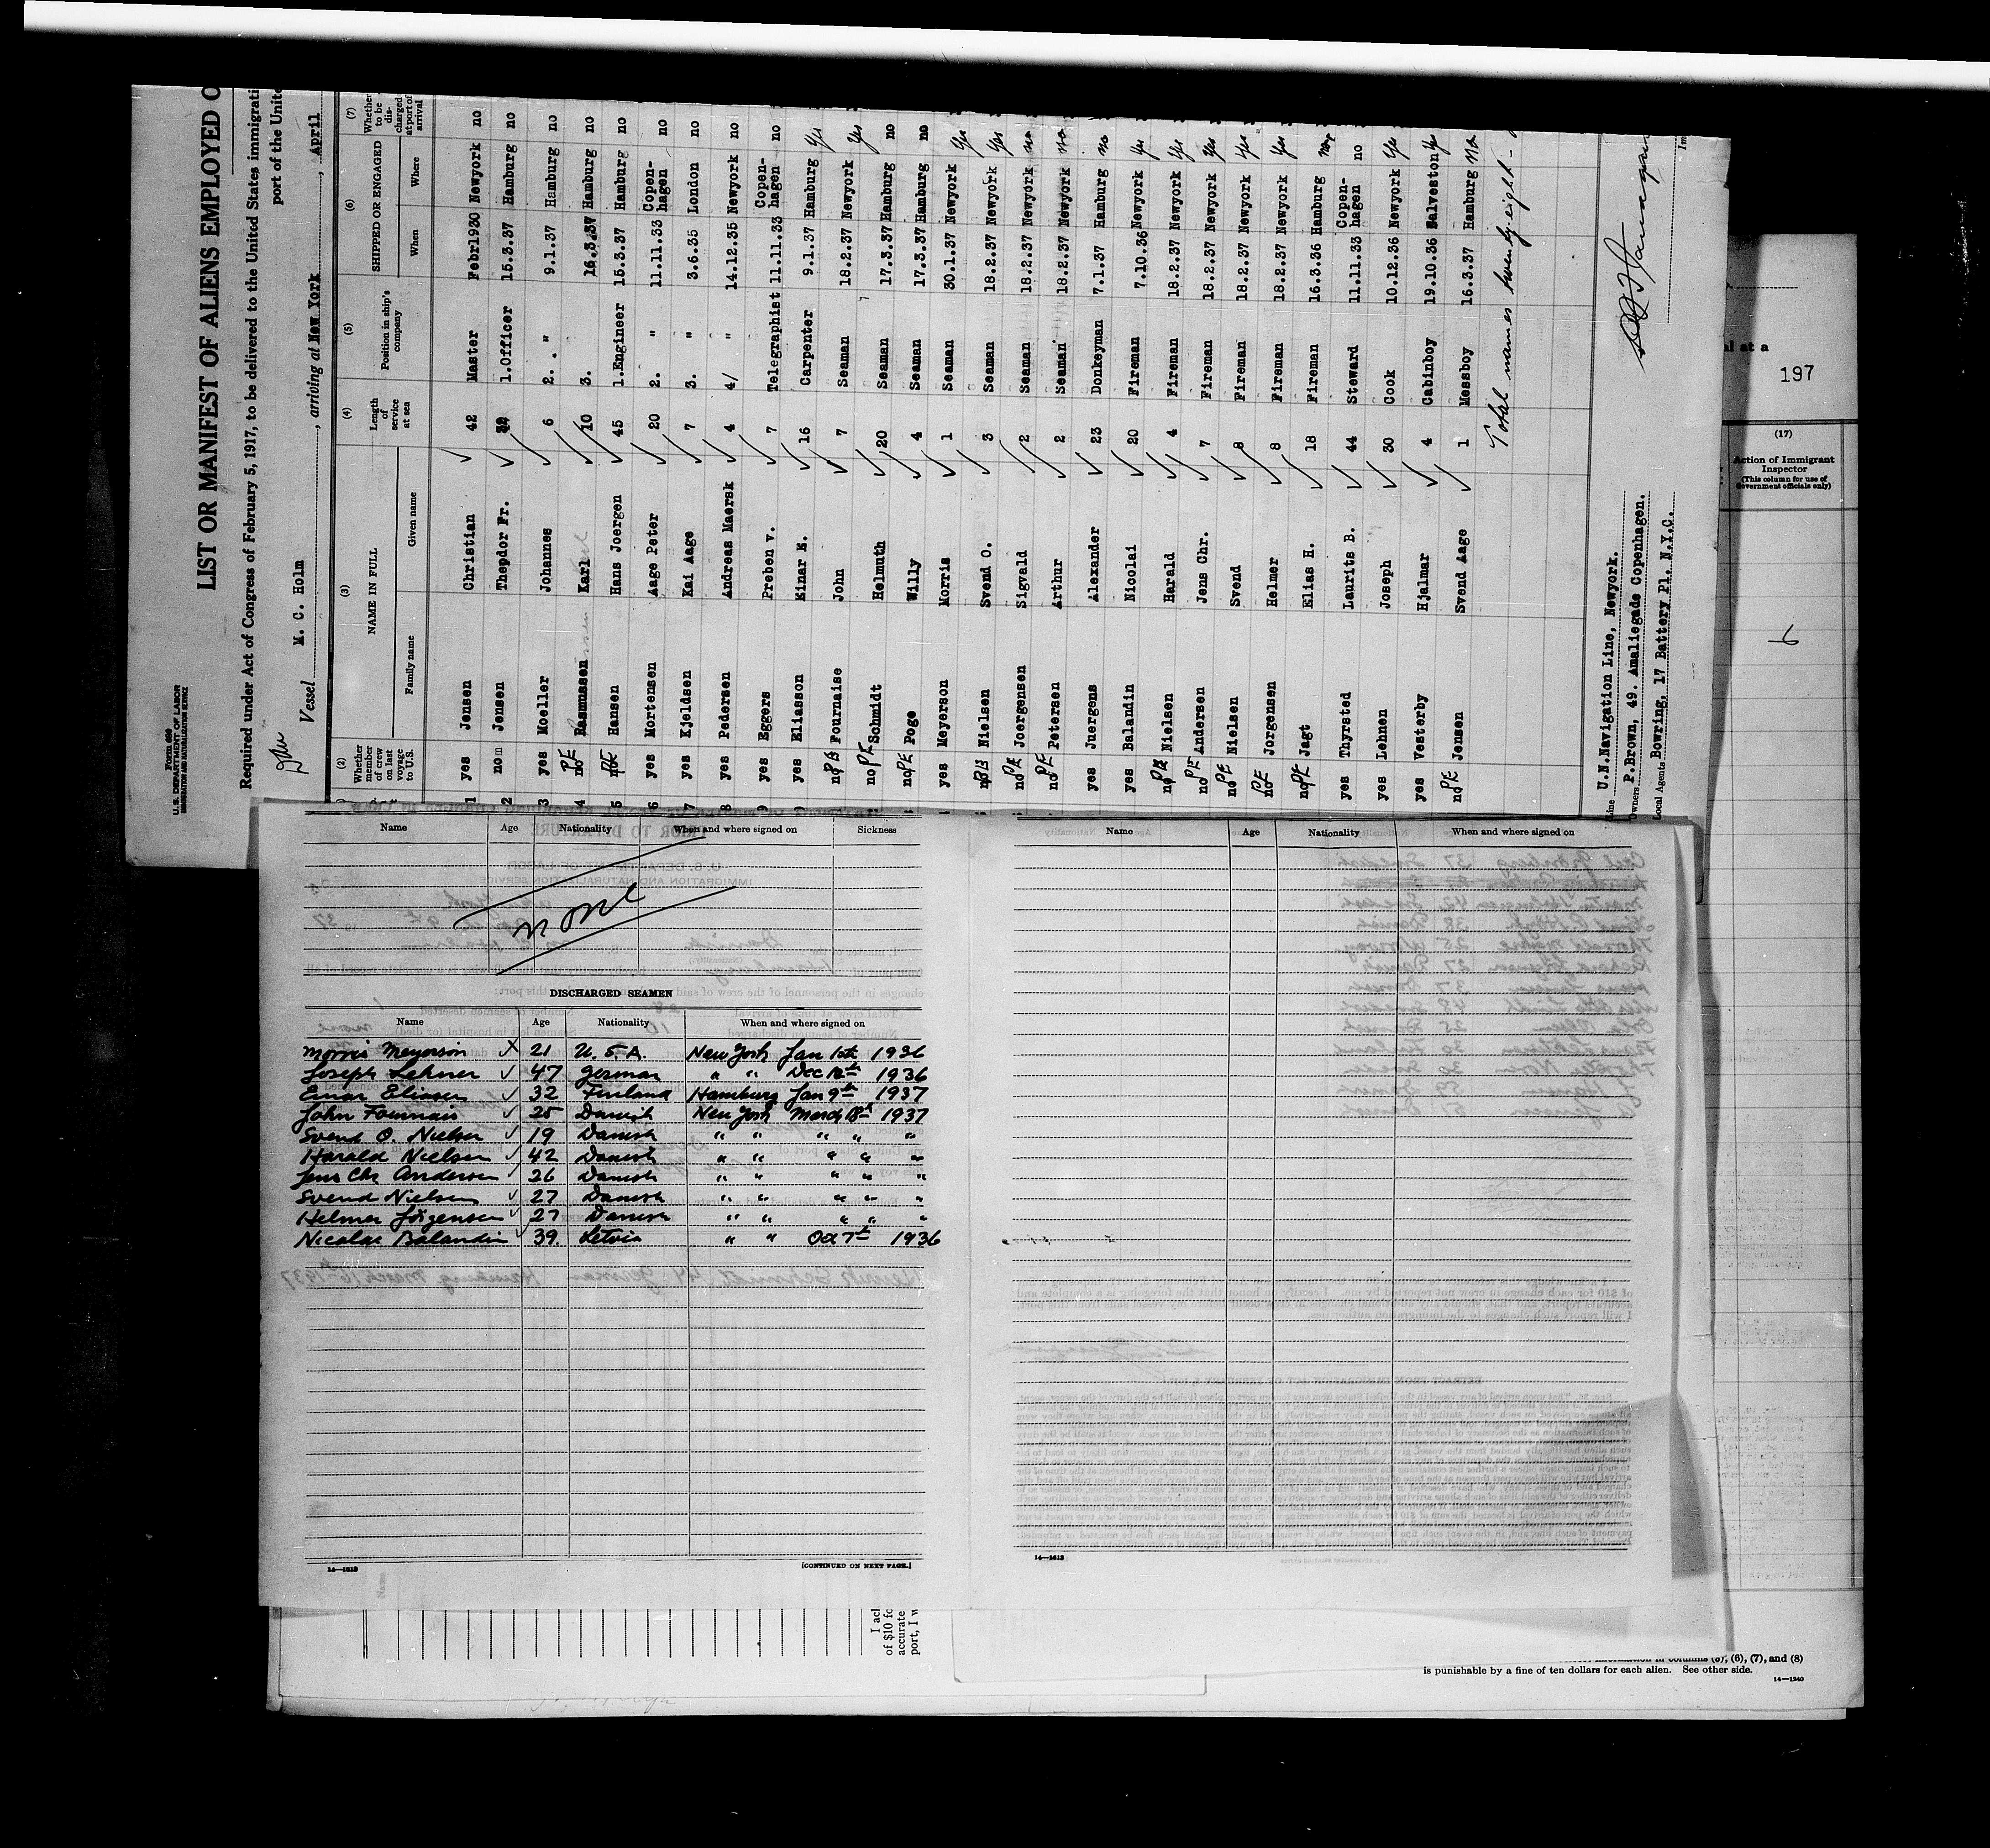 Form 689
U.S. DEPARTMENT OF LABOR
IMMIGRATION AND NATURALIZATION SERVICE
LIST OR MANIFEST OF ALIENS EMPLOYED O
Required under Act of Congress of February 5, 1917, to be delivered to the United States immigrati
port of the Unite
Vessel M. C. Holm, arriving at New York, April
(2) (3) (4) (5) (6) (7)
Whether member of crew on last voyage to U.S. NAME IN FULL Length of service at sea Position in ship's company SHIPPED OR ENGAGED Whether to be discharged at port of arrival
Family name Given name When Where
1 yes Jensen Christian 42 Master Febr1920 Newyork no
2 no Jensen Thepdor Fr. 1.Officer 15.3.37 Hamburg no
3 yes Moeller Johannes 6 2. " 9.1.37 Hamburg no
4 no PE Rasmussen Karl 10 3. 16.3.37 Hamburg no
5 PE Hansen Hans Joergen 45 1.Engineer 15.3.37 Hamburg no
6 yes Mortensen Aage Peter 20 2. " 11.11.33 Copen-hagen no
7 yes Kjeldsen Kai Aage 7 3. " 3.6.35 London no
8 yes Pedersen Andreas Maersk 4 4/ " 14.12.35 Newyork no
9 yes Eggers Preben v. 7 Telegraphist 11.11.33 Copen-hagen no
yes Eliasson Einar E. 16 Carpenter 9.1.37 Hamburg yes
no PE Fournaise John 7 Seaman 18.2.37 Newyork yes
no PE Schmidt Helmuth 20 Seaman 17.3.37 Hamburg no
no PE Poge Willy 4 Seaman 17.3.37 Hamburg no
yes Meyerson Morris 1 Seaman 30.1.37 Newyork yes
no PE Nielsen Svend O. 3 Seaman 18.2.37 Newyork yes
no PE Joergensen Sigvald 2 Seaman 18.2.37 Newyork no
no PE Petersen Arthur 2 Seaman 18.2.37 Newyork no
yes Juergens Alexander 23 Donkeyman 7.1.37 Hamburg no
yes Balandin Nicolai 20 Fireman 7.10.36 Newyork yes
no PE Nielsen Harald 4 Fireman 18.2.37 Newyork yes
no PE Andersen Jens Chr. 7 Fireman 18.2.37 Newyork yes
no PE Nielsen Svend 8 Fireman 18.2.37 Newyork yes
no PE Jorgensen Helmer 8 Fireman 18.2.37 Newyork yes
no PE Jagt Elias H. 18 Fireman 16.3.36 Hamburg
yes Thyrsted Laurits B. 44 Steward 11.11.33 Copen-hagen no
yes Lehnen Joseph 30 Cook 10.12.36 Newyork yes
yes Vesterby Hjalmar 4 Cabinboy 19.10.36 Galveston yes
no PE Jensen Svend Aage 1 Messboy 16.3.37 Hamburg no
Total names twenty eight -
Line U.N.Navigation Line, Newyork.
Owners P.Brown, 49. Amaliegade Copenhagen.
Local Agents Bowring, 17 Battery Pl. N.Y.C.
al at a
197
(17)
Action of Immigrant Inspector
(This column for use of Government officials only)
Name Age Nationality When and where signed on Sickness
none
DISCHARGED SEAMEN
Name Age Nationality When and where signed on
Morris Meyerson 21 U.S.A. New York Jan 1936
Joseph Lehner 47 German " " Dec 1936
Einar Eliasen 32 Finland Hamburg Jan 9th 1937
John Fournais 25 Danish New York March 18th 1937
Svend O. Nielsen 19 Danish " " " " "
Harald Nielsen 42 Danish " " " " "
Jens Chr Andersen 26 Danish " " " " "
Svend Nielsen 27 Danish " " " " "
Helmer Jörgensen 27 Danish " " " " "
Nicolai Balandin 39 Letvia " " Oct 7th 1936
14—1813
[CONTINUED ON NEXT PAGE.]
Name Age Nationality When and where signed on
14—1813
I ack
of $10 fo
accurate
port, I w
(5), (6), (7), and (8)
is punishable by a fine of ten dollars for each alien. See other side.
14—1240